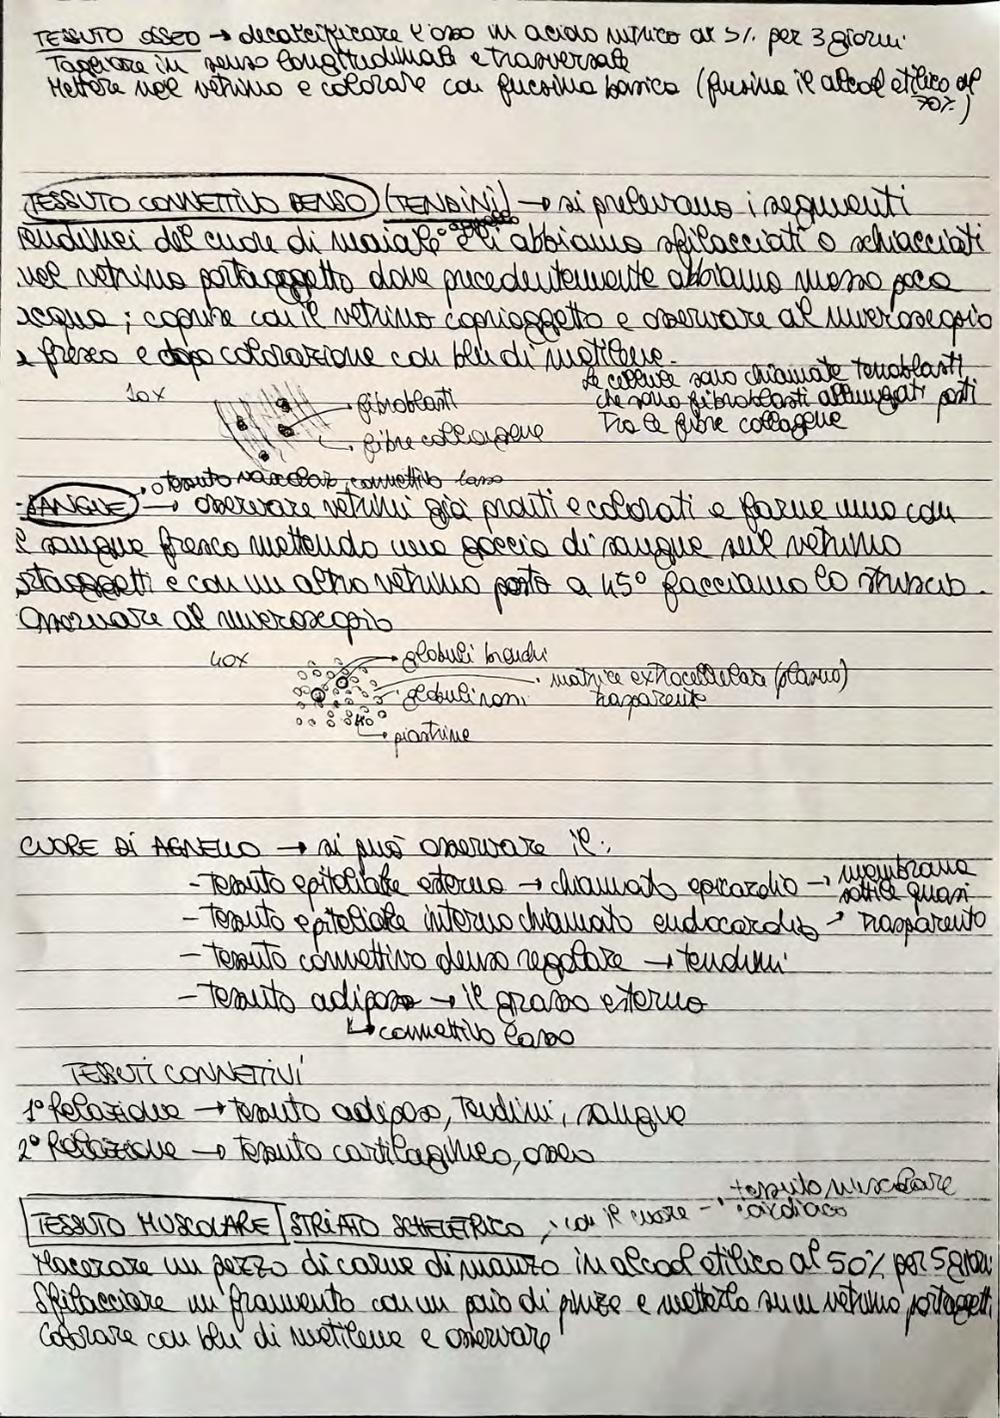 TESSUTO OSSEO → decalcificare l'osso in acido nitrico al 5% per 3 giorni
Tagliare in senso longitudinale e trasversale
Mettere nel vetrino e colorare con fucsina basica (fucsina in alcol etilico al
70%)
TESSUTO CONNETTIVO DENSO (TENDINI) → si prelevano i seguenti
tendinei del cuore di maiale li abbiamo sfilacciati o schiacciati
nel vetrino portaoggetto dove precedentemente abbiamo messo poca
acqua; coprire con il vetrino coprioggetto e osservare al microscopio
a fresco e dopo colorazione con blu di metilene.
Le cellule sono chiamate tenoblasti
10x
che sono fibroblasti allungati posti
fibroblasti
Tra le fibre collagene
fibre collagene
tessuto vascolare, connettivo lasso
SANGUE → osservare vetrini già pronti e colorati e farne uno con
il sangue fresco mettendo una goccia di sangue sul vetrino
portaoggetti e con un altro vetrino posto a 45° facciamo lo striscio.
Osservare al microscopio
40x
globuli bianchi
matrice extracellulare (plasma)
globuli rossi
trasparente
piastrine
CUORE DI AGNELLO → si può osservare il:
- Tessuto epiteliale esterno → chiamato epicardio → membrana
sottile quasi
- Tessuto epiteliale interno chiamato endocardio → trasparente
- Tessuto connettivo denso regolare → tendini
- Tessuto adiposo → il grasso esterno
↳ connettivo lasso
TESSUTI CONNETTIVI
1° Relazione → tessuto adiposo, Tendini, sangue
2° Relazione → Tessuto cartilagineo, osseo
tessuto muscolare
TESSUTO MUSCOLARE STRIATO SCHELETRICO, con il cuore → cardiaco
Macerare un pezzo di carne di manzo in alcool etilico al 50% per 5 giorni
Sfilacciare un framento con un paio di pinze e metterlo su un vetrino portaoggetti
colorare con blu di metilene e osservare